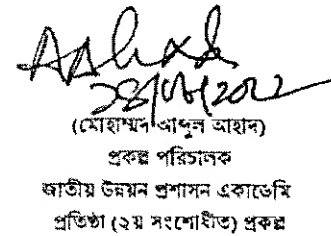 (মোহাম্মদ আব্দুল আহাদ)
প্রকল্প পরিচালক
জাতীয় উন্নয়ন প্রশাসন একাডেমি
প্রতিষ্ঠা (২য় সংশোধীত) প্রকল্প